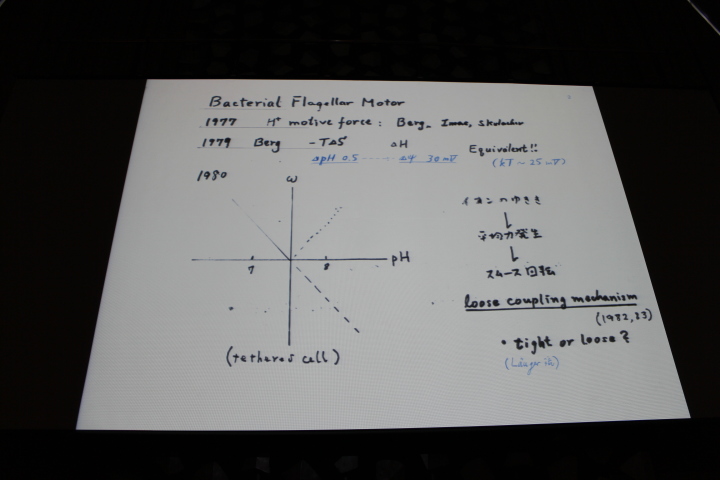 Bacterial Flagellar Motor
1977 H⁺ motive force: Berg, Imae, Skulachev
1979 Berg -TΔS ΔH Equivalent!!
ΔpH 0.5 ······ ΔΨ 30 mV (kT ~ 25 mV)
1980
ω
pH
7 8
(tethered cell)
イオンのゆきき
↓
平均力発生
↓
スムース回転
loose coupling mechanism
(1982, 83)
• tight or loose?